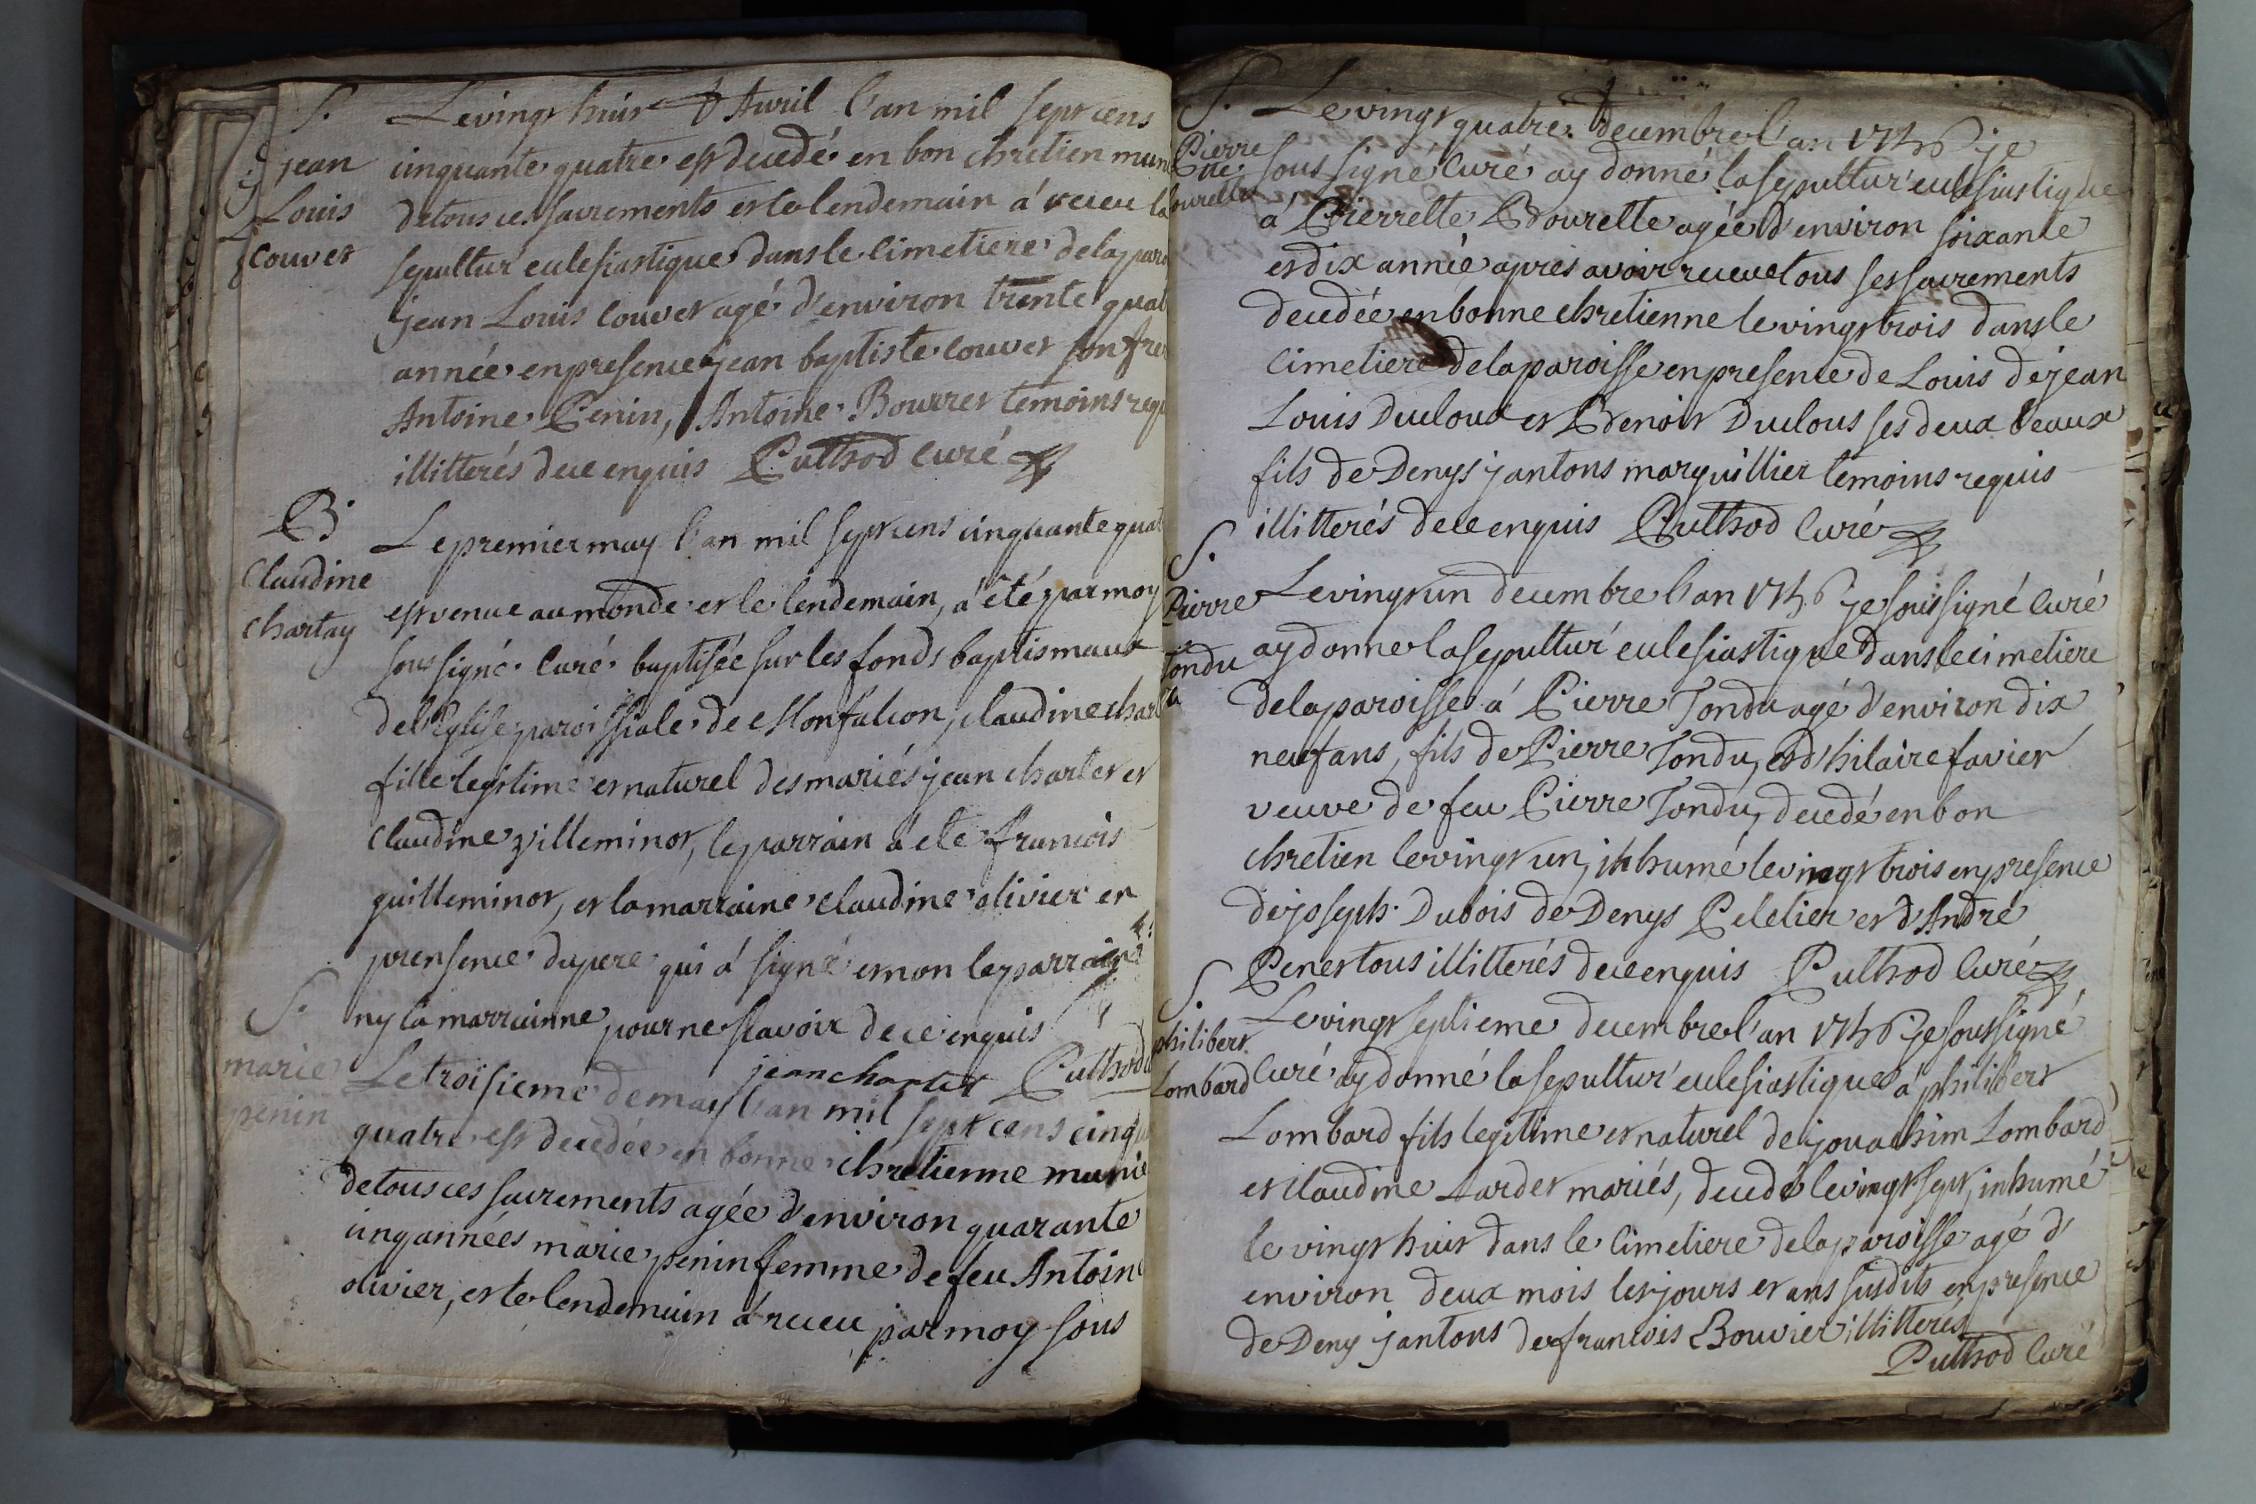 S.
jean
Louis
couvet
Le vingt huit d'Avril l'an mil sept cens
cinquante quatre est decedé en bon chretien mun
de tous ces sacrements et le lendemain á receu la
sepultur ecclesiastique dans le cimetiere de la paro
jean Louis couvet agé d'environ trente quat
année en presence jean baptiste couvet son fre
Antoine Penin, Antoine Bourret temoins requ
illitterés de ce enquis Puthod curé
B.
Claudine
chartay
Le premier may l'an mil sept cens cinquante quat
est venue au monde et le lendemain, á été par moy
sous signé curé baptisée sur les fonds baptismaux
de l'Eglise paroissiale de Monfalcon, claudine chart
fille legitime et naturel des mariés jean chartet et
Claudine villeminot, le parrain á ete francois
guilleminot, et la marraine claudine olivier en
prensence du pere qui á signé et non le parrain
ny la marrainne pour ne scavoir de ce enquis
jean chartet Puthod
S.
marie
penin
Le troisieme de may l'an mil sept cens cinqu
quatre est decedée en bonne chretienne munie
de tous ces sacrements agée d'environ quarante
cinq années marie penin femme de feu Antoine
olivier, et le lendemain á receu par moy sous
S.
Pierre
tte
Bourette
Le vingt quatre decembre l'an 1746 je
sous signé curé ay donné la sepultur ecclesiastique
á Pierrette Bourette agée d'environ soixante
et dix année apres avoir receue tous ses sacrements
decedée en bonne chretienne le vingt trois dans le
cimetiere de la paroisse en presence de Louis de jean
Louis Ducloux et Benoit Duclous ses deux beaux
fils de Denys jantons marguillier temoins requis
illitterés de ce enquis Puthod curé
S.
Pierre
Tondu
Le vingt un decembre l'an 1746 je sous signé curé
ay donne la sepultur ecclesiastique dans le cimetiere
de la paroisse á Pierre Tondu agé d'environ dix
neuf ans, fils de Pierre Tondu, et d'hilaire favier
veuve de feu Pierre Tondu, decedé en bon
chretien le vingt un, inhumé le vingt trois en presence
de joseph Dubois de Denys Peletier et d'André
Penet tous illitterés de ce enquis Puthod curé
S.
philibert
Lombard
Le vingt septieme decembre l'an 1746 je sous signé
curé ay donné la sepultur ecclesiastique á philibert
Lombard fils legitime et naturel de jouachim Lombard
et claudine tardet mariés, decedé le vingt sept, inhumé
le vingt huit dans le cimetiere de la paroisse agé d'
environ deux mois les jours et ans susdits en presence
de Deny jantons de francois Bouvier illitterés
Puthod curé